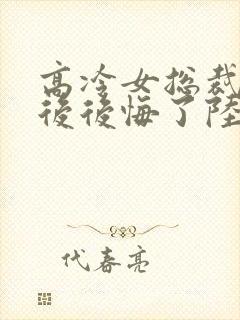 高冷女总裁
後後悔了陸
代春亮